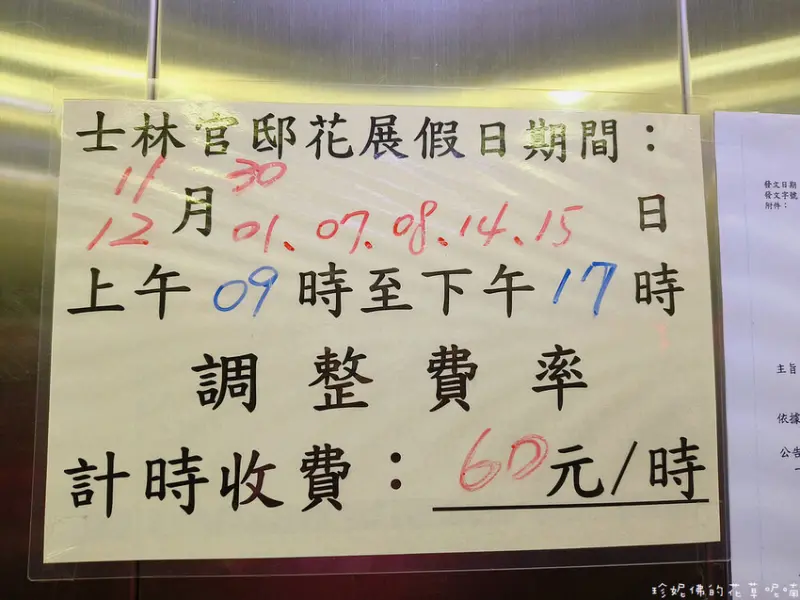 士林官邸花展假日期間：
11 30
12 月 01.07.08.14.15 日
上午 09 時至下午 17 時
調整費率
計時收費：60元/時
發文日期
發文字號
附件：
主旨
依據
公告
珍妮佛的花草呢喃